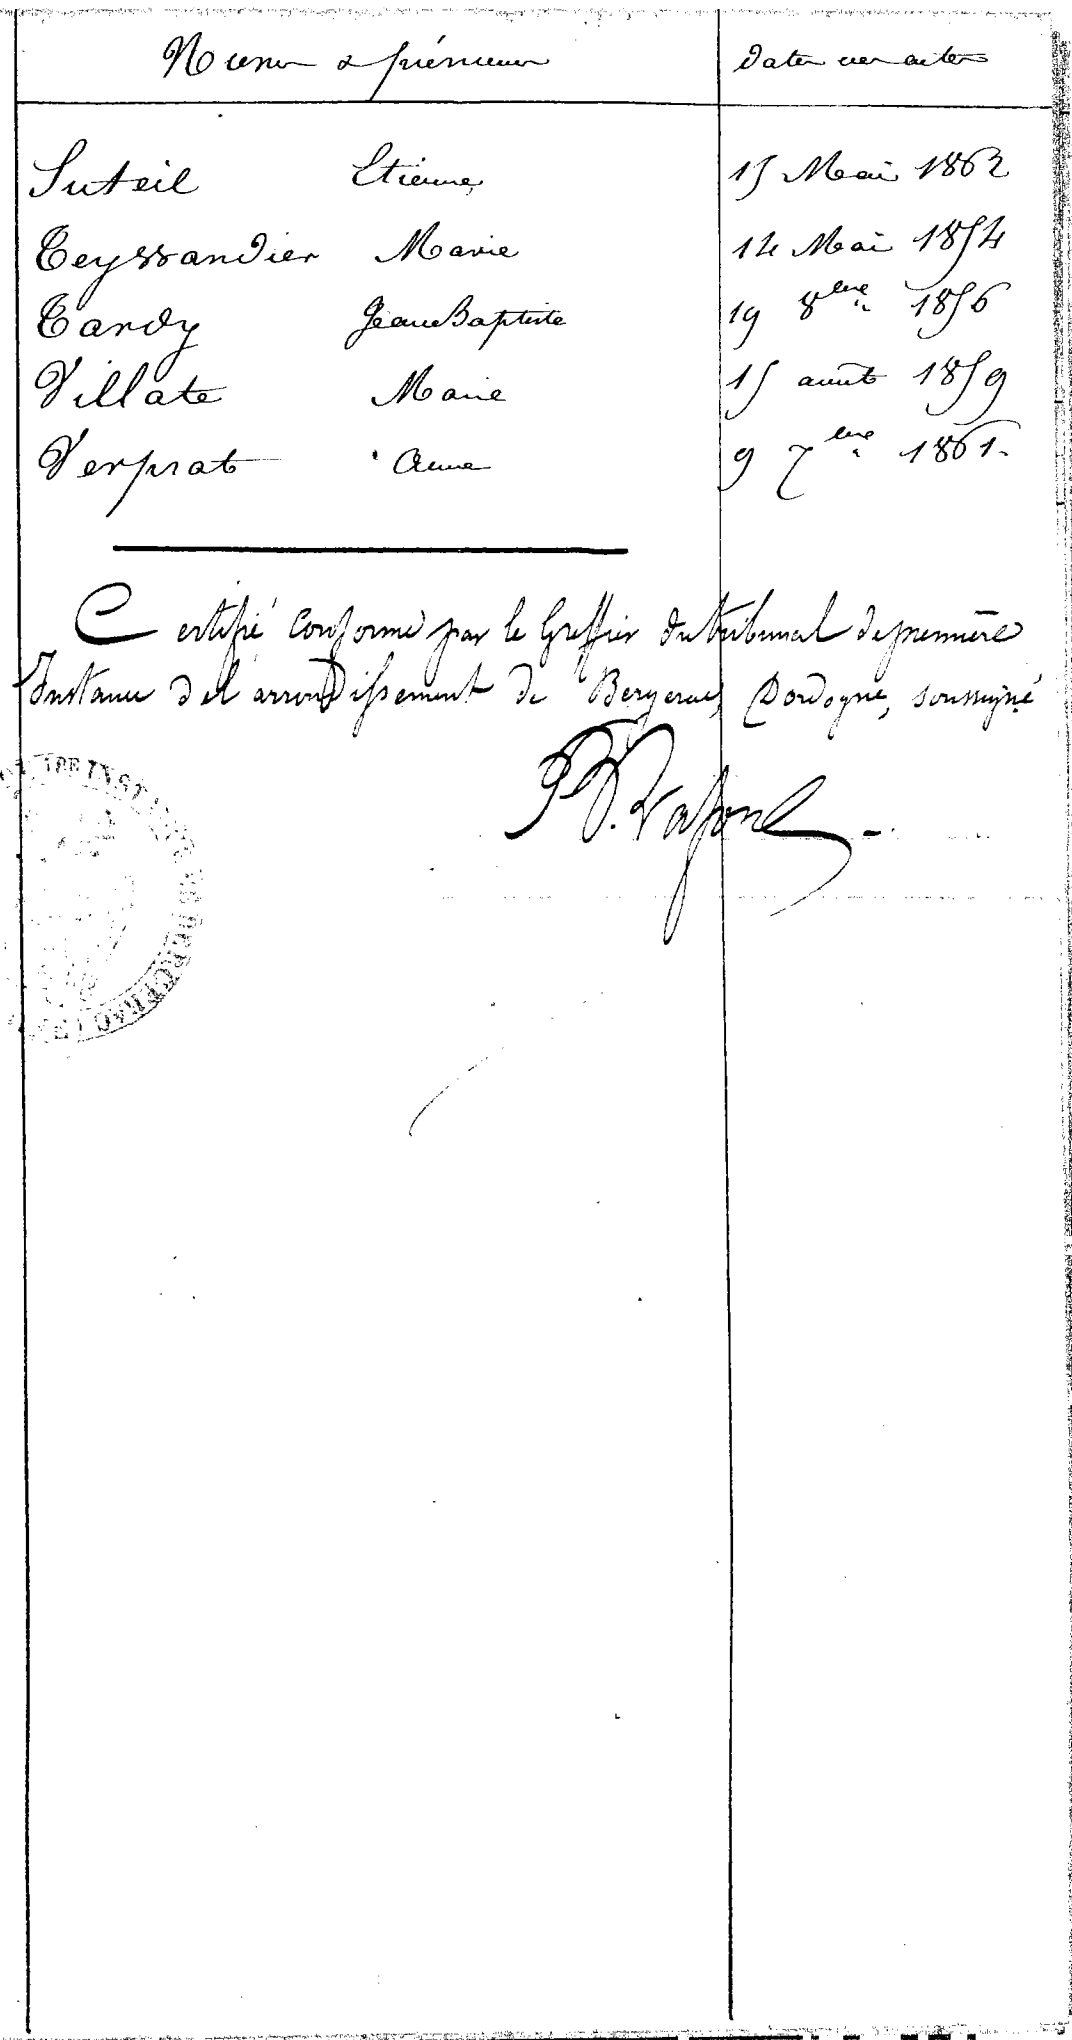 Noms & prénoms Dates des actes
Suteil Etienne 15 Mai 1862
Teyssandier Marie 14 Mai 1854
Tardy Jean Baptiste 19 8bre 1856
Villate Marie 15 août 1859
Verprat Anne 9 7bre 1861.
Certifié conforme par le Greffier du tribunal de première
Instance de l'arrondissement de Bergerac, Dordogne, soussigné
1RE INST DE BERGERAC